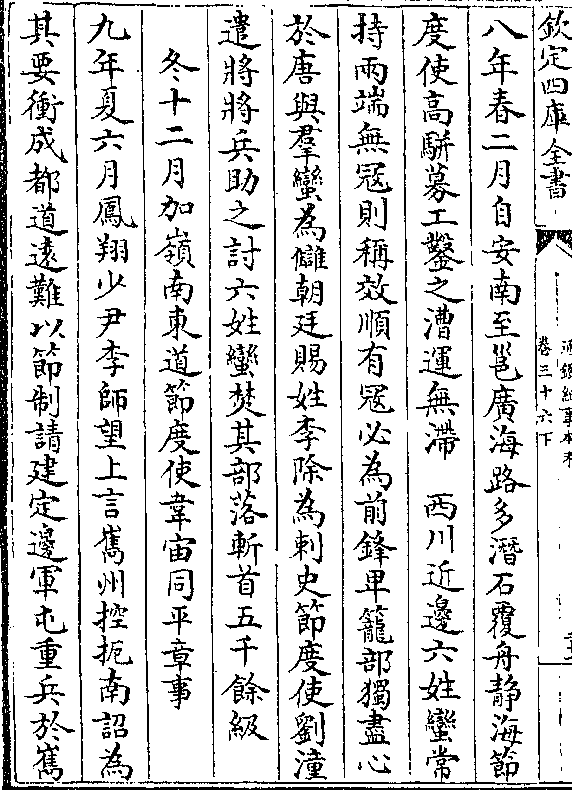 欽定四庫全書
通鑑紀事本末
卷三十六下
八年春二月自安南至邕廣海路多潛石覆舟静海節
度使高駢募工鑿之漕運無滯　西川近邊六姓蠻常
持兩端無冦則稱效順有冦必為前鋒卑籠部獨盡心
於唐與羣蠻為讎朝廷賜姓李除為刺史節度使劉潼
遣將將兵助之討六姓蠻焚其部落斬首五千餘級
冬十二月加嶺南東道節度使韋宙同平章事
九年夏六月鳳翔少尹李師望上言巂州控扼南詔為
其要衝成都道遠難以節制請建定邊軍屯重兵於巂